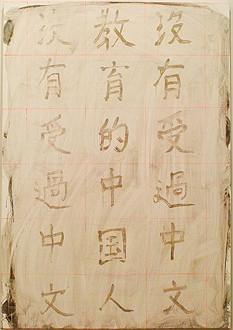 没有受過中文
教育的中国人
没有受過中文